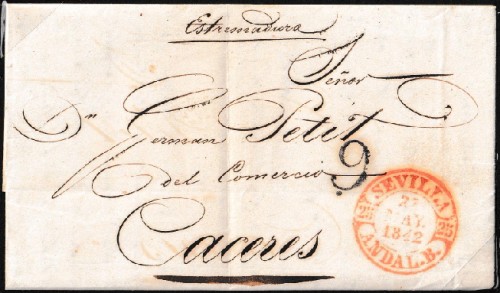 Estremadura
Señor
Dn German Petit
del Comercio
Caceres
9
SEVILLA
27
MAY.
1842
ANDAL.B.